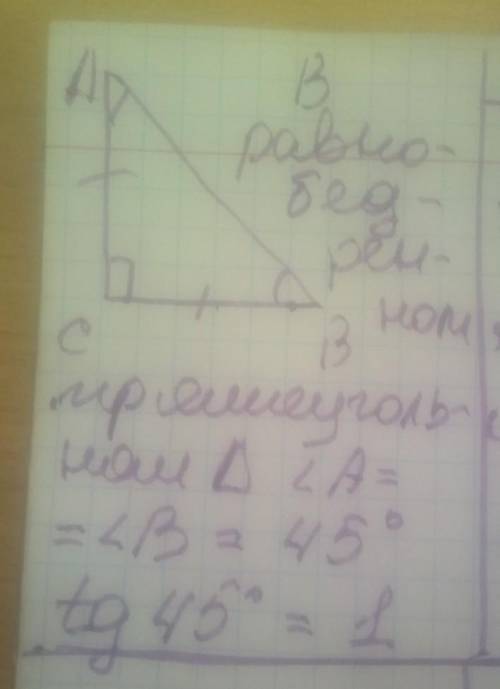 A
В
равно-
бед-
рен-
ном
C
B
прямоуголь-
ном Δ ∠A=
=∠B = 45°
tg 45° = 1